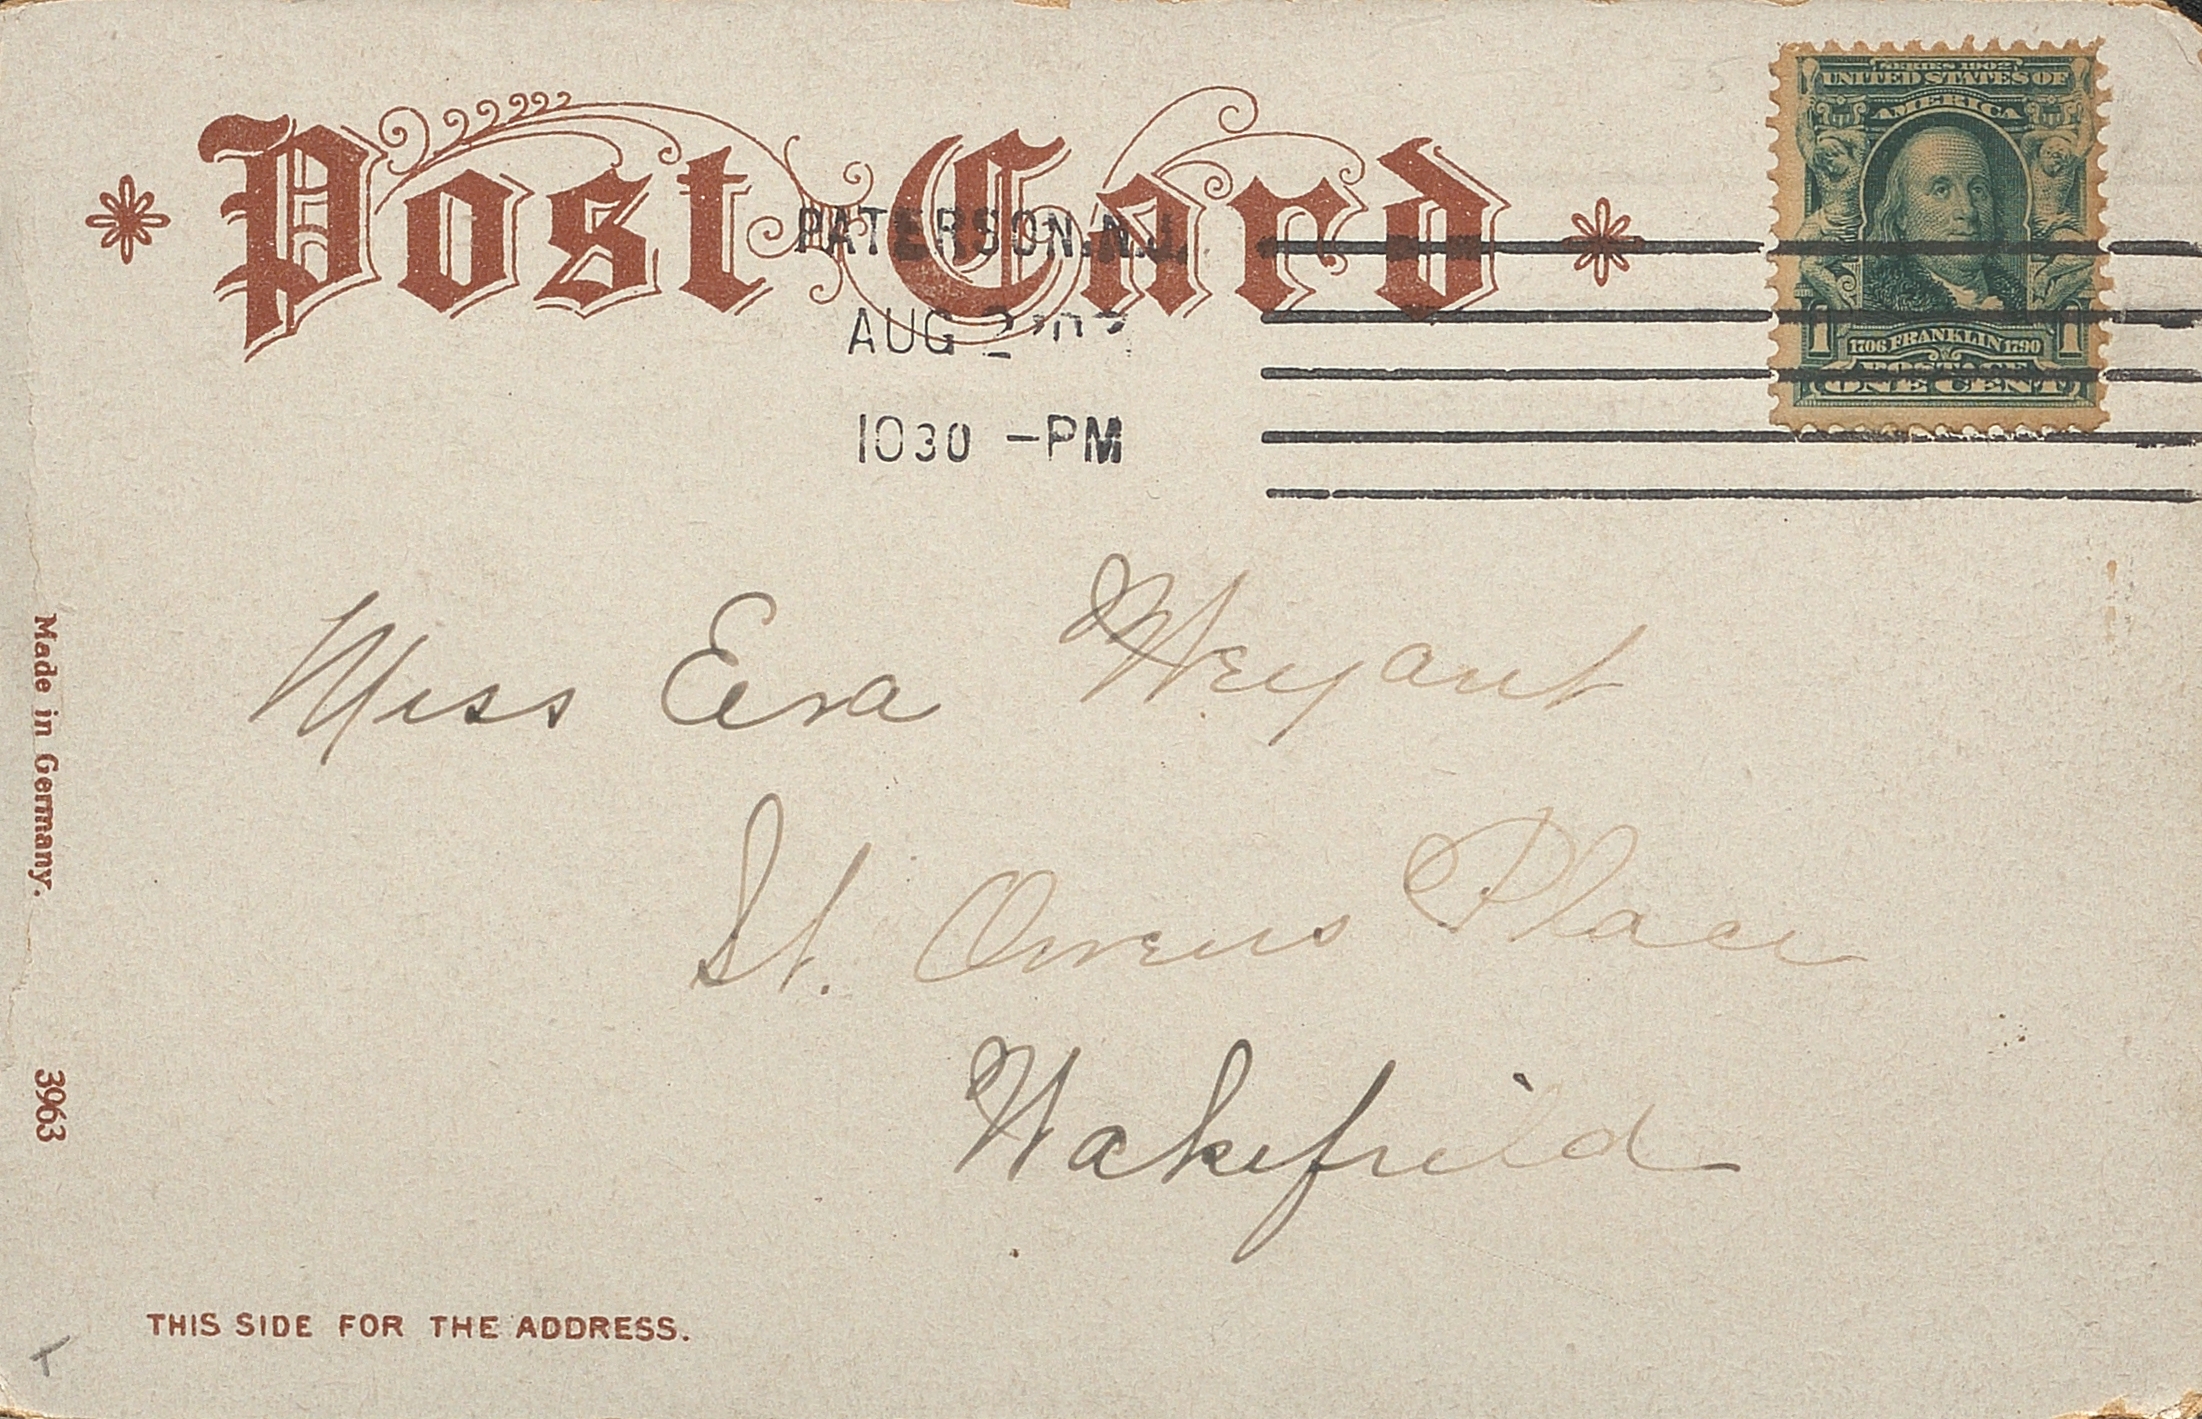 Post Card
PATERSON.N.J.
AUG 2
1030 -PM
SERIES 1902
UNITED STATES OF
AMERICA
1706 FRANKLIN 1790
1 1
POSTAGE
ONE CENT
Miss Eva Weyant
St. Owens Place
Wakefield
Made in Germany.
3963
THIS SIDE FOR THE ADDRESS.